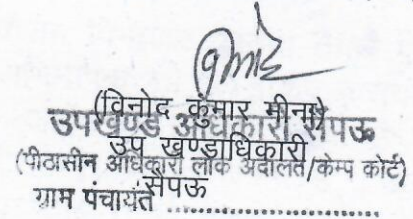 (विनोद कुमार मीना)
उपखण्ड अधिकारी सैंपऊ
उप खण्डाधिकारी
(पीठासीन अधिकारी लोक अदालत/केम्प कोर्ट)
सैंपऊ
ग्राम पंचायत ....................